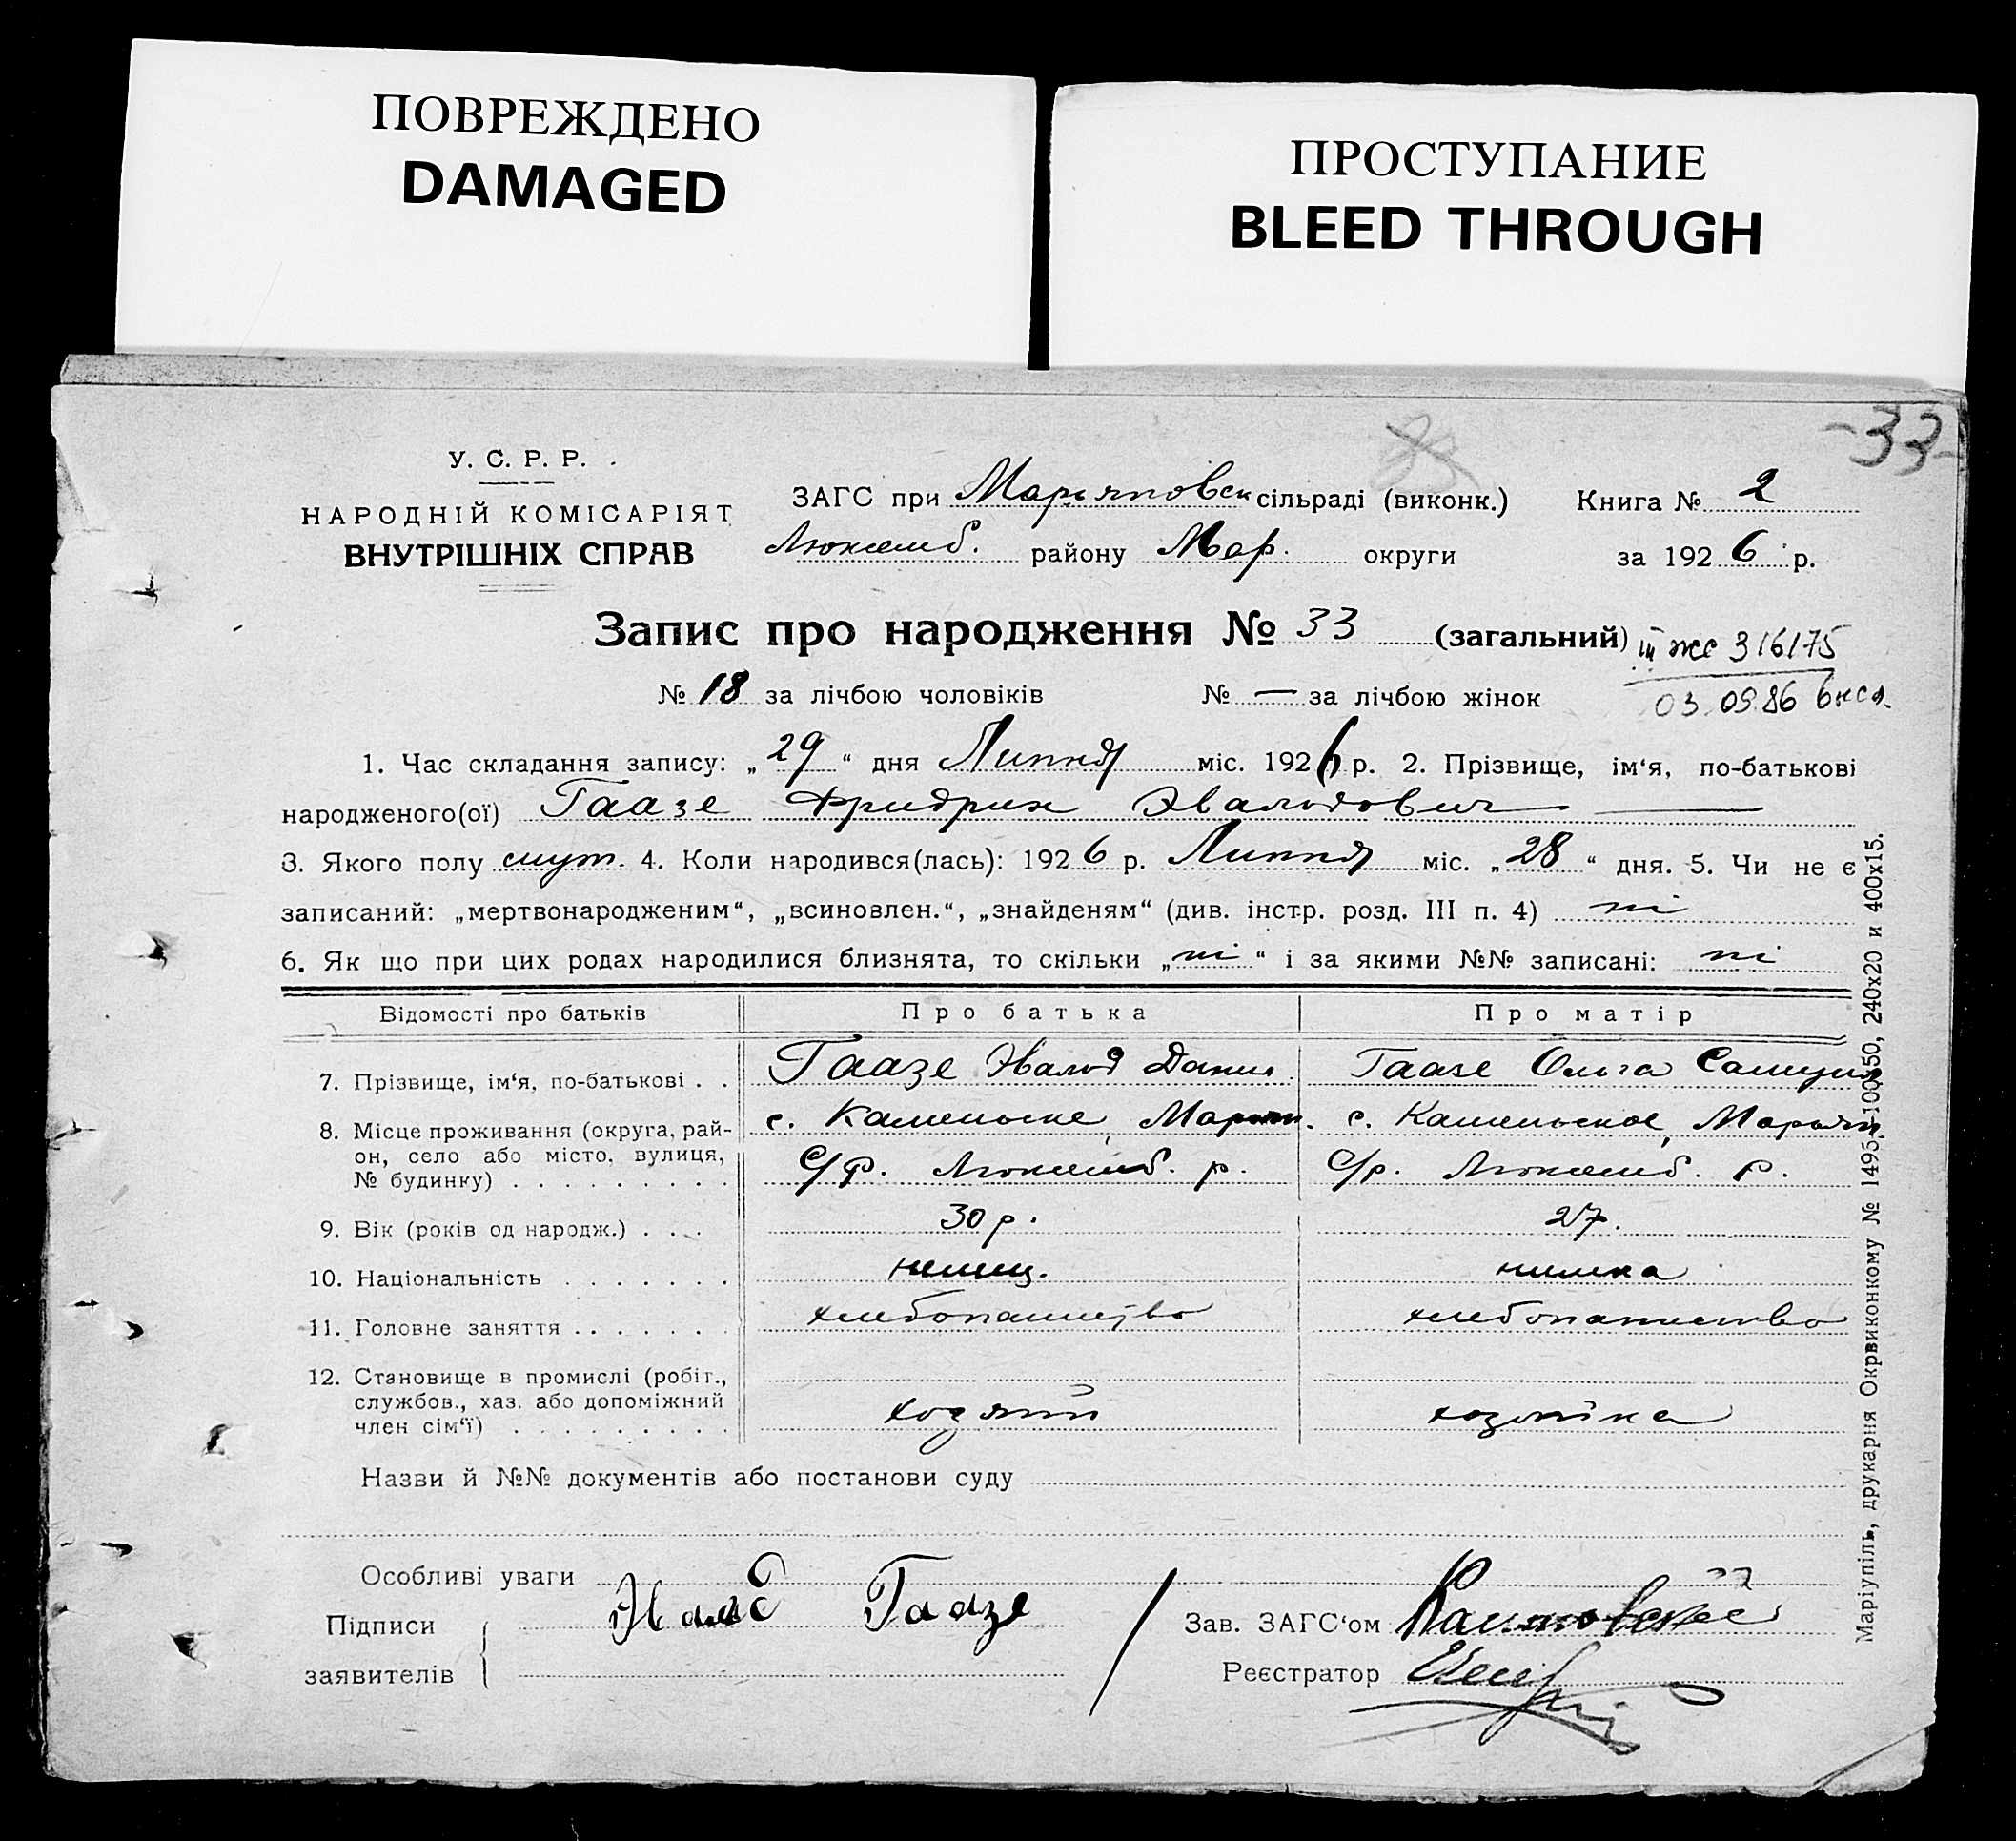 ПОВРЕЖДЕНО
DAMAGED
ПРОСТУПАНИЕ
BLEED THROUGH
-33-
У. С. Р. Р.
НАРОДНІЙ КОМІСАРІЯТ
ВНУТРІШНІХ СПРАВ
ЗАГС при Марьяновск сільраді (виконк.) Книга № 2
Люксемб. району Мар. округи за 1926 р.
Запис про народження № 33 (загальний)
III ЖС 316175
03.09.86
№ 18 за лічбою чоловіків № — за лічбою жінок
1. Час складання запису: „29“ дня Липня міс. 1926 р. 2. Прізвище, ім‘я, по-батькові
народженого(ої) Гаазе Фридрих Эвальдович
3. Якого полу 4. Коли народився(лась): 1926 р. Липня міс. „28“ дня. 5. Чи не є
записаний: „мертвонародженим“, „всиновлен.“, „знайденям“ (див. інстр. розд. III п. 4) ні
6. Як що при цих родах народилися близнята, то скільки „ні“ і за якими №№ записані: ні
Відомості про батьків Про батька Про матір
7. Прізвище, ім‘я, по-батькові . . Гаазе Эвальд Данил Гаазе Ольга Самуил
8. Місце проживання (округа, рай- с. Каменьске, Марьян. с. Каменьское, Марьян
он, село або місто, вулиця, С/р. Люксемб. р. С/р. Люксемб. р.
№ будинку) . . . . . . . . .
9. Вік (років од народж.) . . . 30 р. 27 р.
10. Національність . . . . . . . немец. нимка
11. Головне заняття . . . . . . . хлебопашество хлебопашество
12. Становище в промислі (робіт.,
службов., хаз. або допоміжний хозяин хозяйка
член сім‘ї) . . . . . . . . .
Назви й №№ документів або постанови суду
Особливі уваги
Підписи Эвалд Гаазе Зав. ЗАГС‘ом
заявителів Реєстратор
Маріупіль, друкарня Окрвиконкому № 1495-100×50, 240х20 и 400х15.